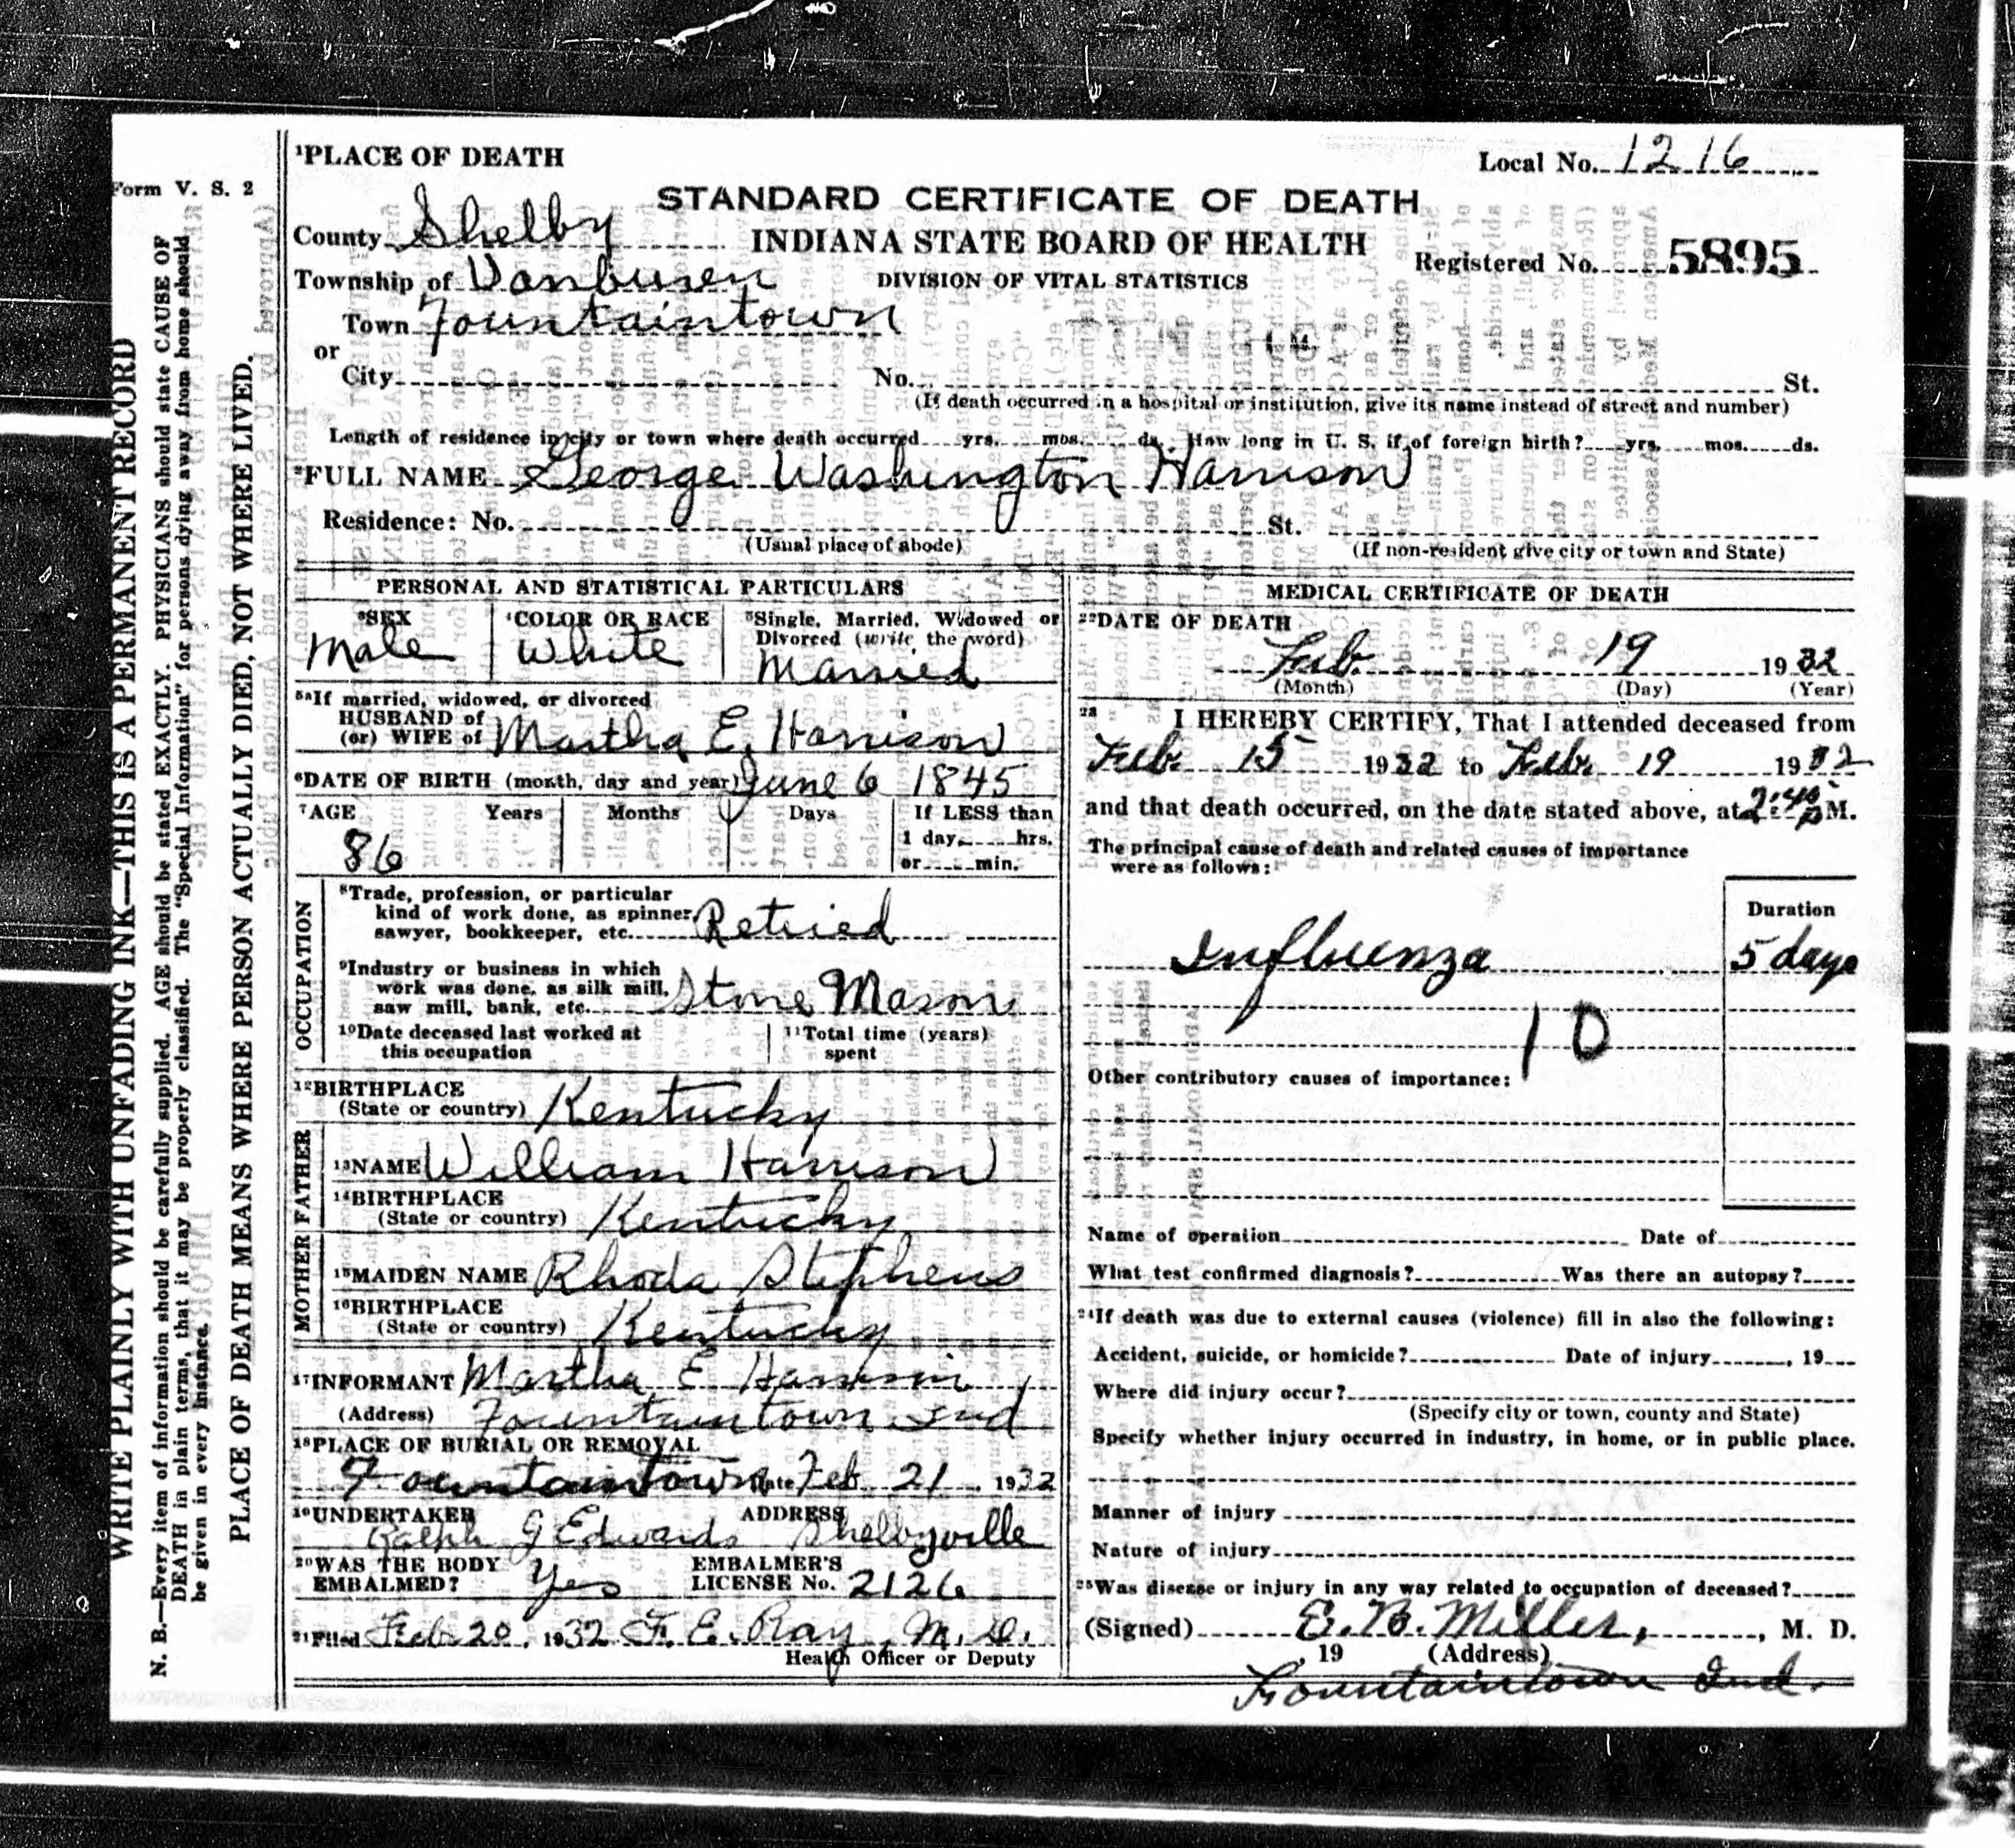 Form V. S. 2
WRITE PLAINLY WITH UNFADING INK—THIS IS A PERMANENT RECORD
N. B.—Every item of information should be carefully supplied. AGE should be stated EXACTLY. PHYSICIANS should state CAUSE OF
DEATH in plain terms, that it may be properly classified. The "Special Information" for persons dying away from home should
be given in every instance.
PLACE OF DEATH MEANS WHERE PERSON ACTUALLY DIED, NOT WHERE LIVED.
1PLACE OF DEATH
Local No. 1216
STANDARD CERTIFICATE OF DEATH
County Shelby
INDIANA STATE BOARD OF HEALTH
Registered No. 5895
Township of Vanbusen
DIVISION OF VITAL STATISTICS
Town Fountaintown
or
City No. St.
(If death occurred in a hospital or institution, give its name instead of street and number)
Length of residence in city or town where death occurred yrs. mos. ds. How long in U. S. if of foreign birth? yrs. mos. ds.
2FULL NAME George Washington Harrison
Residence: No. St.
(Usual place of abode) (If non-resident give city or town and State)
PERSONAL AND STATISTICAL PARTICULARS
3SEX 4COLOR OR RACE 5Single, Married, Widowed or
Divorced (write the word)
Male White Married
5aIf married, widowed, or divorced
HUSBAND of
(or) WIFE of Martha E. Harrison
6DATE OF BIRTH (month, day and year) June 6 1845
7AGE Years Months Days If LESS than
1 day, hrs.
86 or min.
OCCUPATION
8Trade, profession, or particular
kind of work done, as spinner,
sawyer, bookkeeper, etc. Retried
9Industry or business in which
work was done, as silk mill,
saw mill, bank, etc. Stone Mason
10Date deceased last worked at 11Total time (years)
this occupation spent
12BIRTHPLACE
(State or country) Kentucky
FATHER
13NAME William Harrison
14BIRTHPLACE
(State or country) Kentucky
MOTHER
15MAIDEN NAME Rhoda Stephens
16BIRTHPLACE
(State or country) Kentucky
17INFORMANT Martha E. Harrison
(Address) Fountaintown Ind
18PLACE OF BURIAL OR REMOVAL
Fountaintown Date Feb 21 1932
19UNDERTAKER ADDRESS
Ralph G Edwards Shelbyville
20WAS THE BODY EMBALMER'S
EMBALMED? Yes LICENSE No. 2126
21Filed Feb 20, 1932 F. E. Ray, M. D.
Health Officer or Deputy
MEDICAL CERTIFICATE OF DEATH
22DATE OF DEATH
Feb. 19 1932
(Month) (Day) (Year)
23 I HEREBY CERTIFY, That I attended deceased from
Febr 15 1932 to Febr 19 1932
and that death occurred, on the date stated above, at 2:40 P M.
The principal cause of death and related causes of importance
were as follows:
Duration
Influenza 5 days
10
Other contributory causes of importance:
Name of operation Date of
What test confirmed diagnosis? Was there an autopsy?
24If death was due to external causes (violence) fill in also the following:
Accident, suicide, or homicide? Date of injury , 19
Where did injury occur?
(Specify city or town, county and State)
Specify whether injury occurred in industry, in home, or in public place.
Manner of injury
Nature of injury
25Was disease or injury in any way related to occupation of deceased?
(Signed) E. B. Miller, , M. D.
, 19 (Address)
Fountaintown Ind.